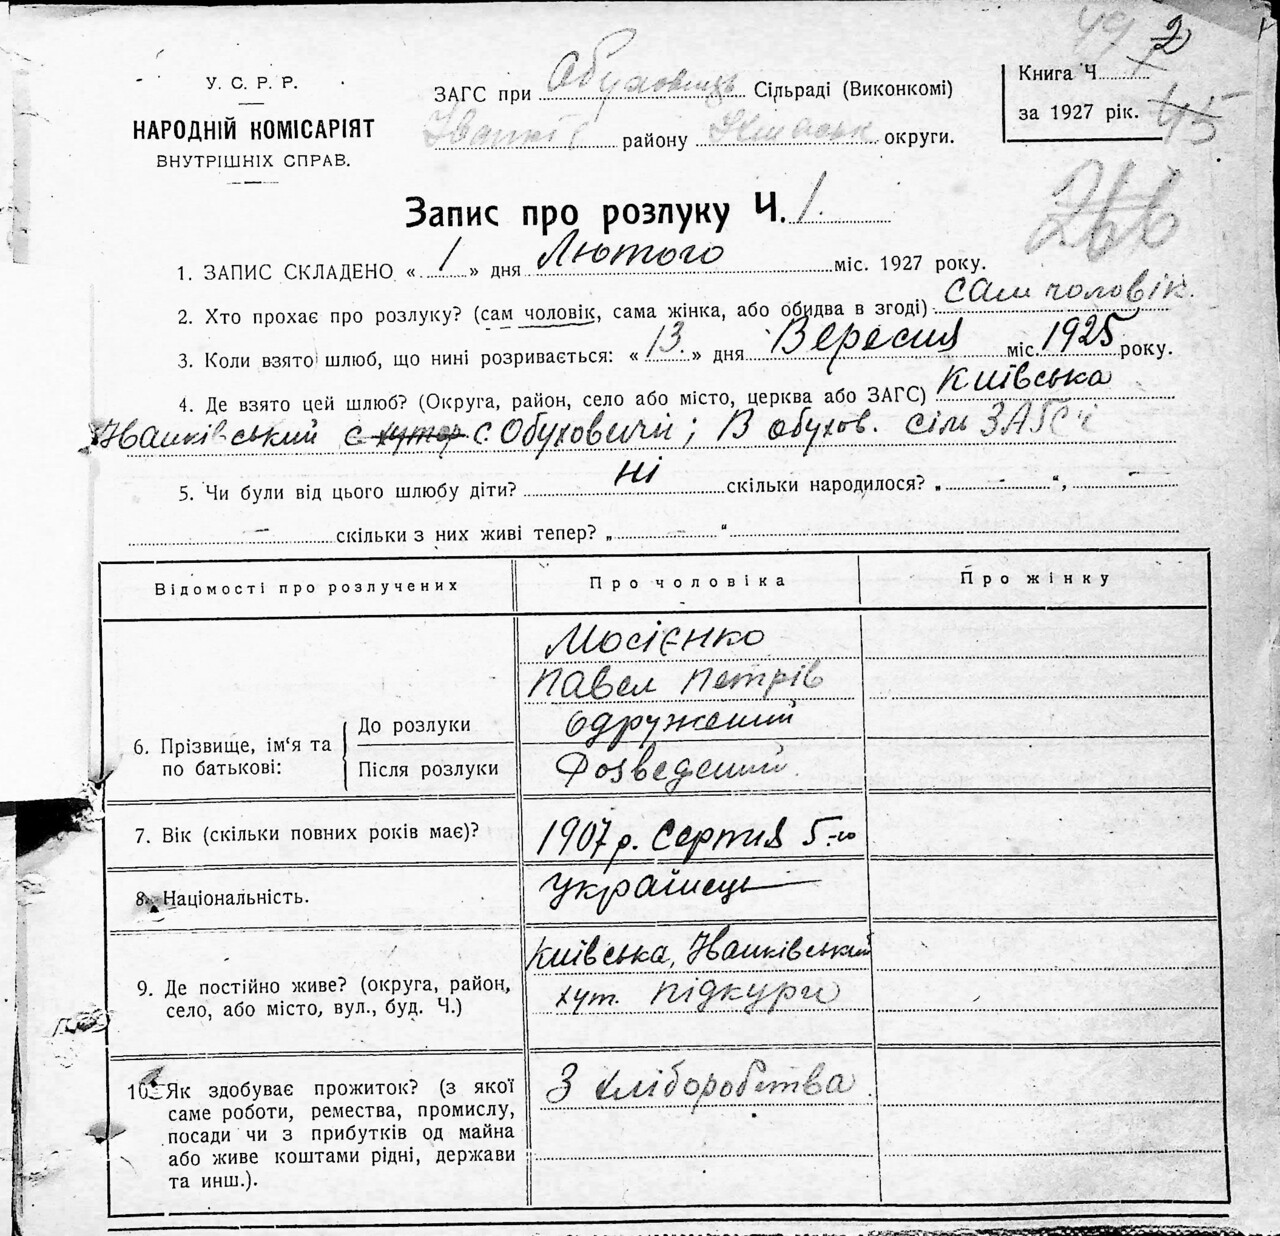 49 2
У. С. Р. Р.
НАРОДНІЙ КОМІСАРІЯТ
ВНУТРІШНІХ СПРАВ.
ЗАГС при Обуховицьк Сільраді (Виконкомі)
Іванків району округи.
Книга Ч
за 1927 рік. 45
266
Запис про розлуку Ч. 1.
1. ЗАПИС СКЛАДЕНО « 1 » дня Лютого міс. 1927 року.
2. Хто прохає про розлуку? (сам чоловік, сама жінка, або обидва в згоді) сам чоловік.
3. Коли взято шлюб, що нині розривається: « 13. » дня Вересня міс. 1925 року.
4. Де взято цей шлюб? (Округа, район, село або місто, церква або ЗАГС) Київська
Іванківський с хутор с. Обуховичи; В обухов. сіль ЗАГСі
5. Чи були від цього шлюбу діти? ні скільки народилося? „ - “, -
- скільки з них живі тепер? „ - “
Відомості про розлучених Про чоловіка Про жінку
6. Прізвище, ім‘я та по батькові:
До розлуки
Після розлуки
Мосієнко
Павел Петрів
Одружений
Розведений
7. Вік (скільки повних років має)? 1907 р. Серпня 5-го
8. Національність. Українець
9. Де постійно живе? (округа, район,
село, або місто, вул., буд. Ч.)
Київська, Іванківський
хут. Підкурги
10. Як здобуває прожиток? (з якої
саме роботи, ремества, промислу,
посади чи з прибутків од майна
або живе коштами рідні, держави
та инш.).
З хліборобства